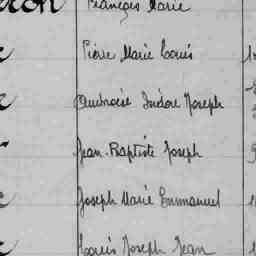 François Marie
Pierre Marie Louis
Ambroise Isidore Joseph
Jean-Baptiste Joseph
Joseph Marie Emmanuel
Louis Joseph Jean